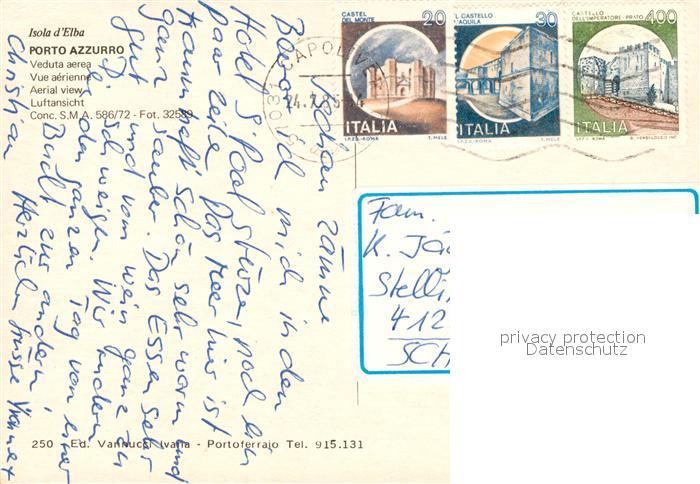 Isola d'Elba
PORTO AZZURRO
Veduta aerea
Vue aérienne
Aerial view
Luftansicht
Conc. S.M.A. 586/72 - Fot. 32589
CASTEL
DEL MONTE
20
ITALIA
I.P.Z.S.-ROMA T. MELE
IL CASTELLO
L'AQUILA
30
ITALIA
I.P.Z.S.-ROMA T. MELE
CASTELLO
DELL'IMPERATORE - PRATO
400
ITALIA
I.P.Z.S. ROMA
CAPOL
24.7.85
zäme
Bevor ich mich in den
Hotel Pool stürze, noch ein
paar Zeilen. Das Meer hier ist
traumhaft schön, sehr warm und
ganz sauber. Das Essen sehr
gut und vom Wein ganz zu
schweigen. Wir
den ganzen Tag von einer
Bucht zur andern,
Herzliche Grüsse
Christian
Fam.
K. Jä
Stelli
412
SCH
privacy protection
Datenschutz
250 - Ed. Vannucci Ivana - Portoferraio Tel. 915.131